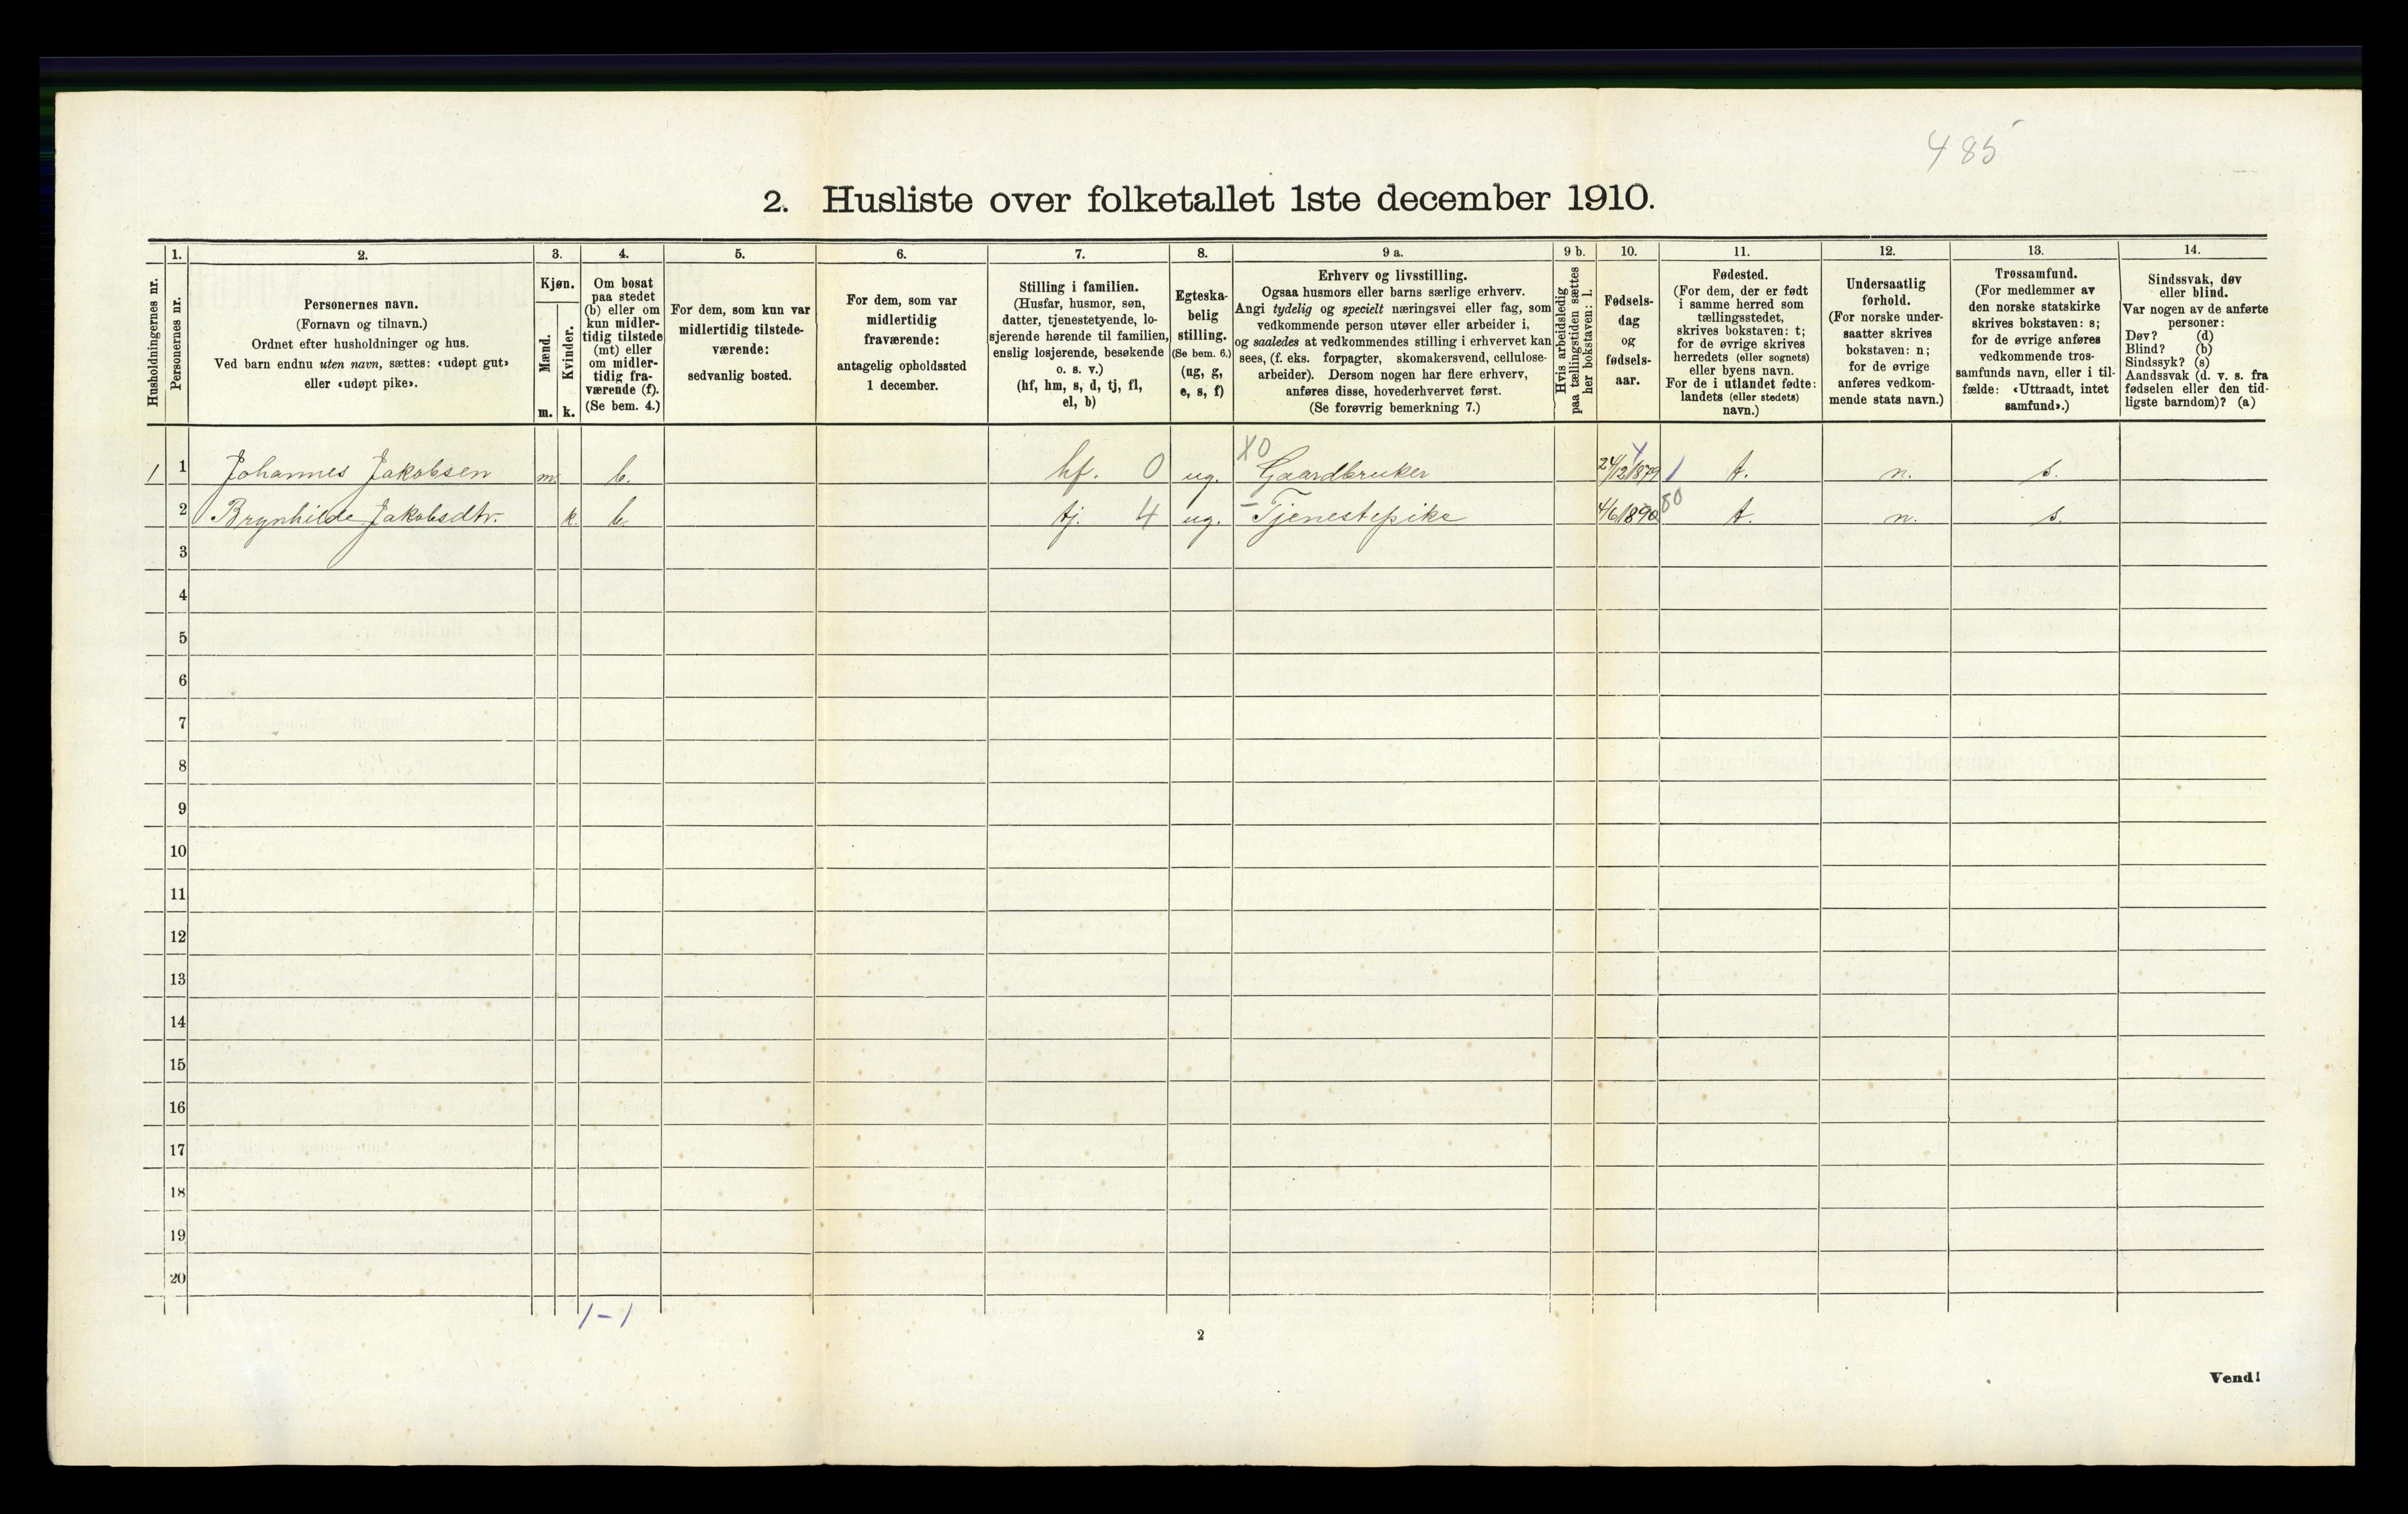 485
2. Husliste over folketallet 1ste december 1910.
Husholdningernes nr.
1.
Personernes nr.
2.
Personernes navn.
(Fornavn og tilnavn.)
Ordnet efter husholdninger og hus.
Ved barn endnu uten navn, sættes: «udøpt gut»
eller «udøpt pike».
3.
Kjøn.
Mænd.
m.
Kvinder.
k.
4.
Om bosat
paa stedet
(b) eller om
kun midler-
tidig tilstede
(mt) eller
om midler-
tidig fra-
værende (f).
(Se bem. 4.)
5.
For dem, som kun var
midlertidig tilstede-
værende:
sedvanlig bosted.
6.
For dem, som var
midlertidig
fraværende:
antagelig opholdssted
1 december.
7.
Stilling i familien.
(Husfar, husmor, søn,
datter, tjenestetyende, lo-
sjerende hørende til familien,
enslig losjerende, besøkende
o. s. v.)
(hf, hm, s, d, tj, fl,
el, b)
8.
Egteska-
belig
stilling.
(Se bem. 6.)
(ug, g,
e, s, f)
9 a.
Erhverv og livsstilling.
Ogsaa husmors eller barns særlige erhverv.
Angi tydelig og specielt næringsvei eller fag, som
vedkommende person utøver eller arbeider i,
og saaledes at vedkommendes stilling i erhvervet kan
sees, (f. eks. forpagter, skomakersvend, cellulose-
arbeider). Dersom nogen har flere erhverv,
anføres disse, hovederhvervet først.
(Se forøvrig bemerkning 7.)
9 b.
Hvis arbeidsledig
paa tællingstiden sættes
her bokstaven: l.
10.
Fødsels-
dag
og
fødsels-
aar.
11.
Fødested.
(For dem, der er født
i samme herred som
tællingsstedet,
skrives bokstaven: t;
for de øvrige skrives
herredets (eller sognets)
eller byens navn.
For de i utlandet fødte:
landets (eller stedets)
navn.)
12.
Undersaatlig
forhold.
(For norske under-
saatter skrives
bokstaven: n;
for de øvrige
anføres vedkom-
mende stats navn.)
13.
Trossamfund.
(For medlemmer av
den norske statskirke
skrives bokstaven: s;
for de øvrige anføres
vedkommende tros-
samfunds navn, eller i til-
fælde: «Uttraadt, intet
samfund».)
14.
Sindssvak, døv
eller blind.
Var nogen av de anførte
personer:
Døv? (d)
Blind? (b)
Sindssyk? (s)
Aandssvak (d. v. s. fra
fødselen eller den tid-
ligste barndom)? (a)
X0
1 1 Johannes Jakobsen m. b. hf. 0 ug. Gaardbruker 24/12 1879 1 t. n. s.
2 Brynhilde Jakobsdtr. k. b. tj. 4 ug. - Tjenestepike 4/6 1890 80 t. n. s.
3
4
5
6
7
8
9
10
11
12
13
14
15
16
17
18
19
20
1-1
2
Vend!